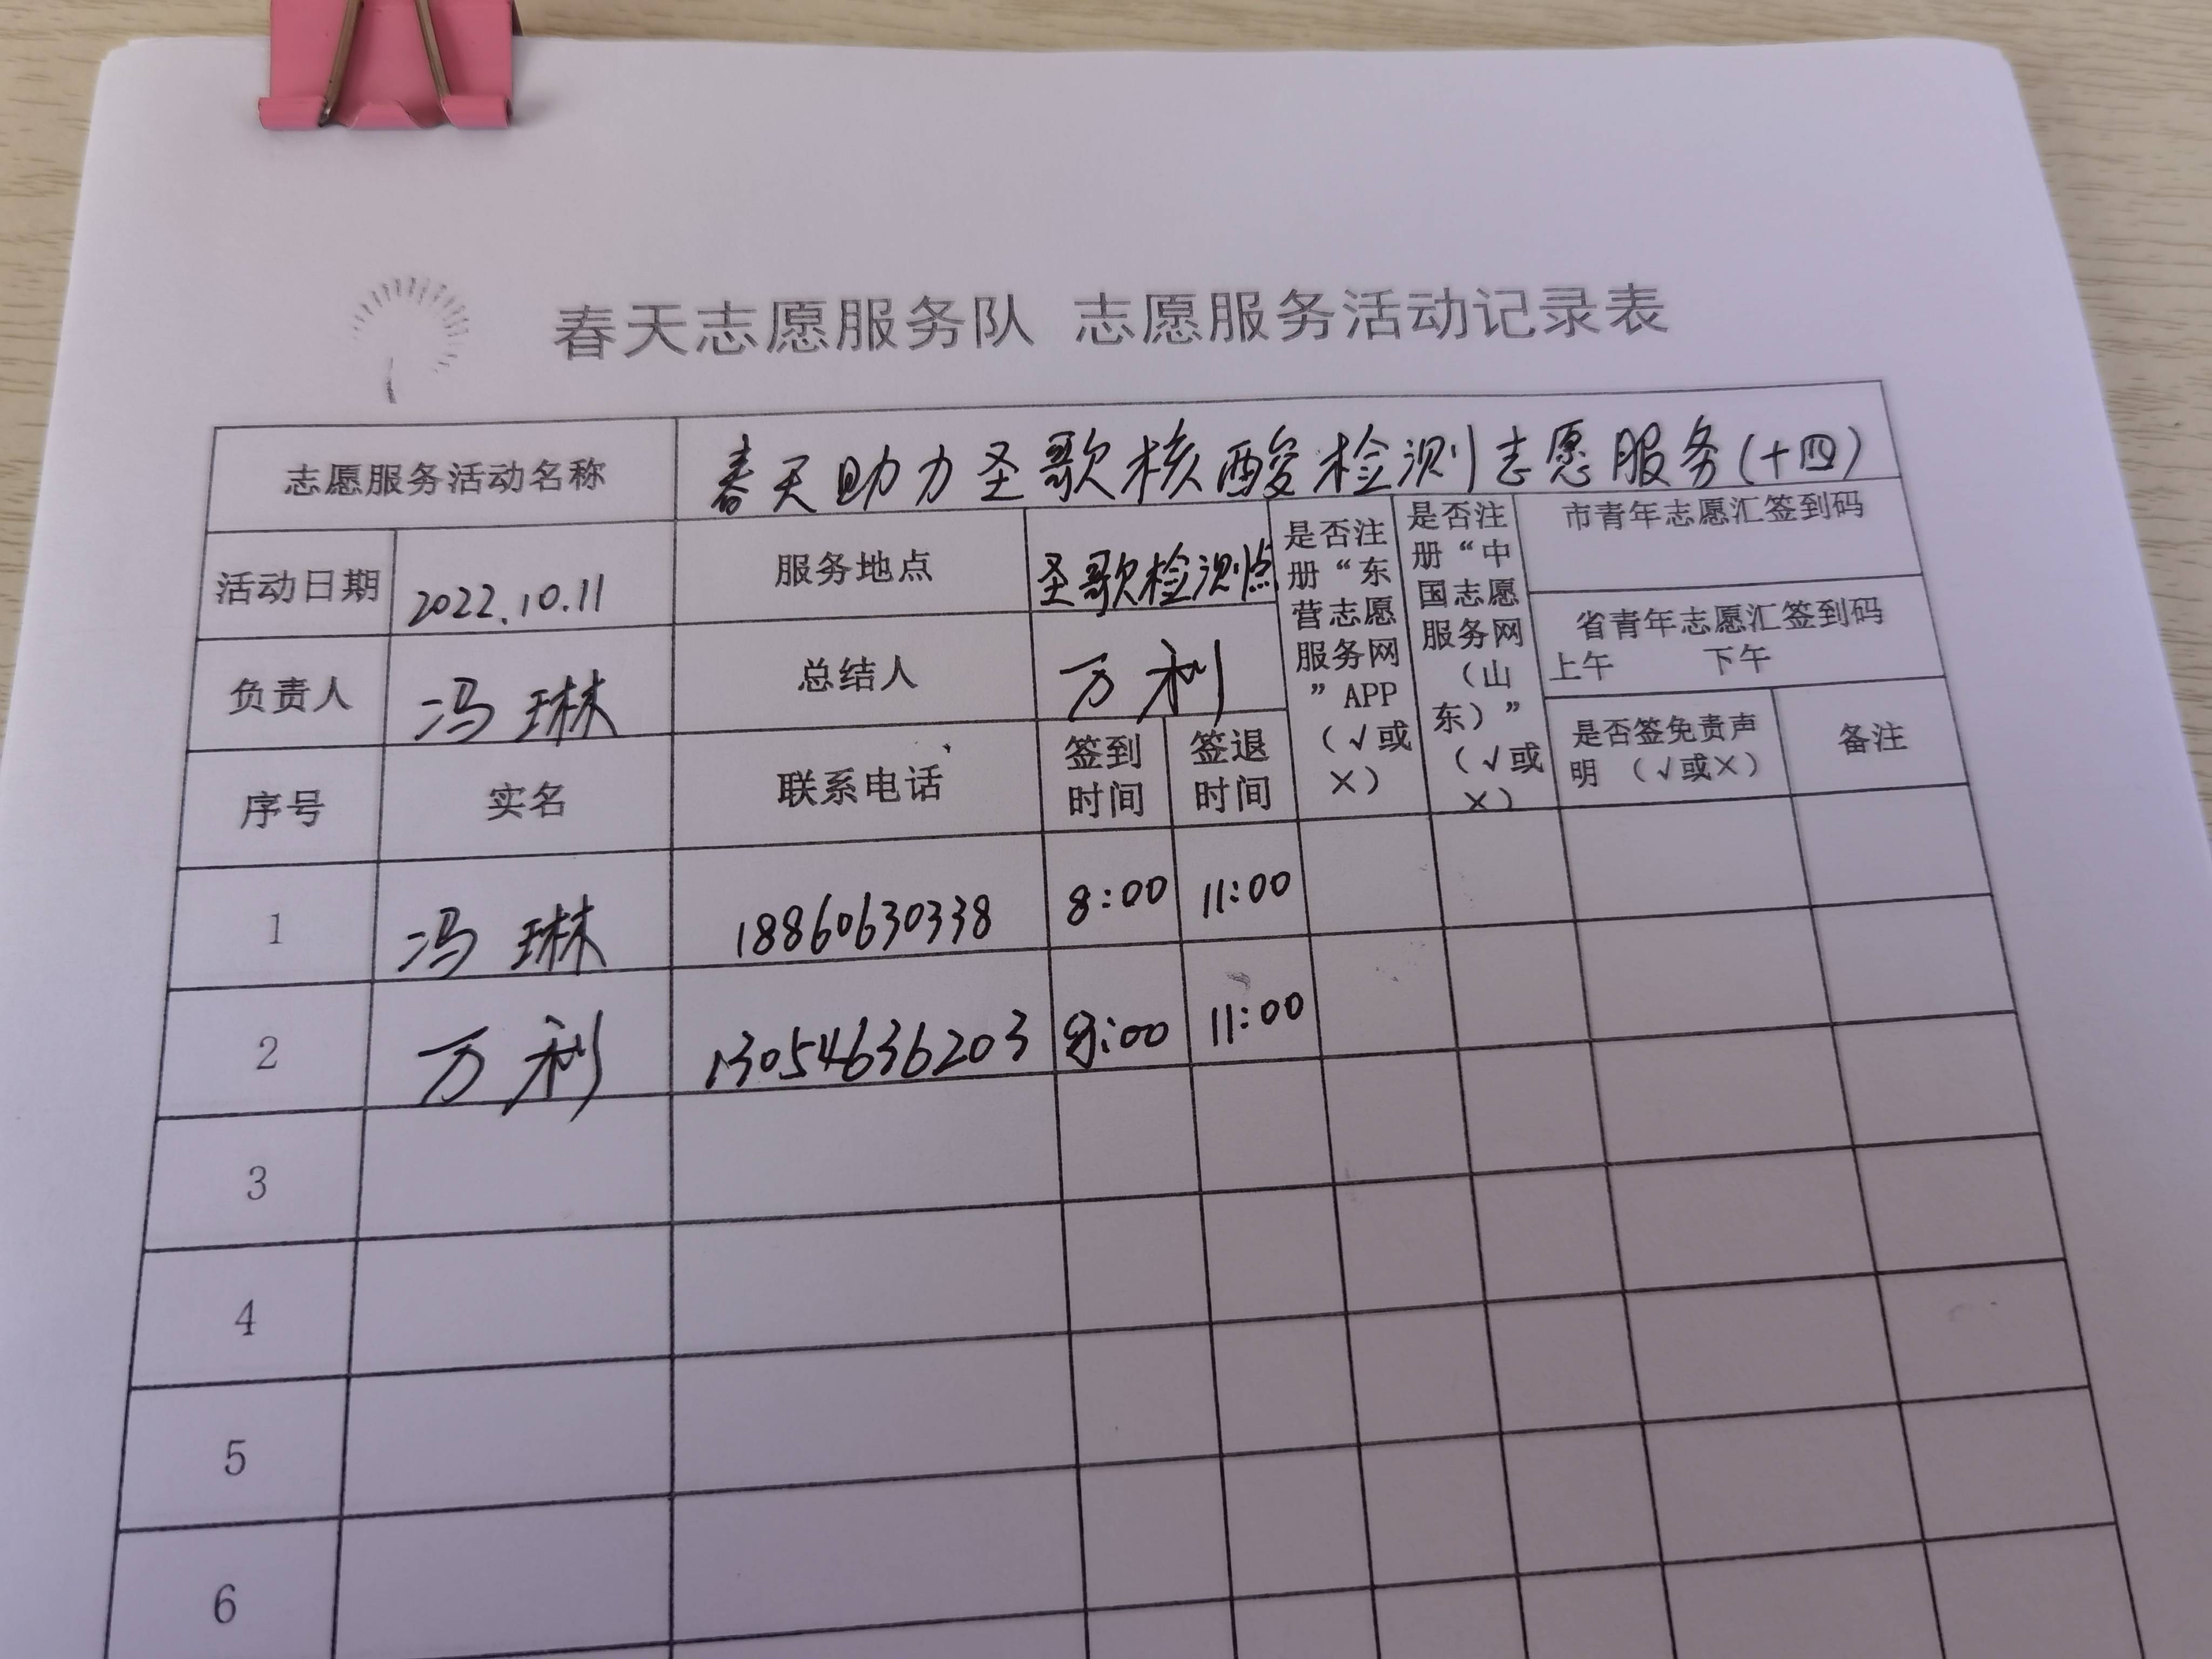 春天志愿服务队 志愿服务活动记录表
志愿服务活动名称 春天助力圣歌核酸检测志愿服务(十四)
活动日期 2022.10.11 服务地点 圣歌检测点
负责人 冯琳 总结人 万利
是否注
册“东
营志愿
服务网
”APP
（√或
×）
是否注
册“中
国志愿
服务网
（山
东）”
（√或
×）
市青年志愿汇签到码
省青年志愿汇签到码
上午 下午
是否签免责声
明 （√或×）
备注
序号 实名 联系电话
签到
时间
签退
时间
1 冯琳 18860630338 8:00 11:00
2 万利 13054636203 8:00 11:00
3
4
5
6